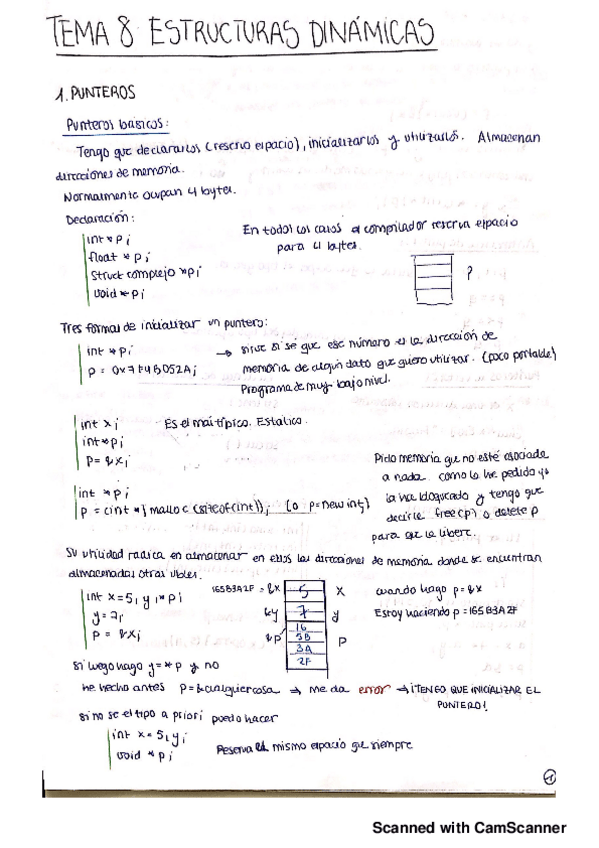 TEMA 8: ESTRUCTURAS DINÁMICAS
1. PUNTEROS
Punteros básicos:
Tengo que declararlos (reservo espacio), inicializarlos y utilizarlos. Almacenan
direcciones de memoria.
Normalmente ocupan 4 bytes.
Declaración:
int * p;
float * p;
struct complejo *p;
void * p;
En todos los casos el compilador reserva espacio
para 4 bytes.
?
Tres formas de inicializar un puntero:
int * p;
p = 0x7b4b052A;
→ sirve si se que ese número es la dirección de
memoria de algún dato que quiero utilizar. (poco portable)
Programa de muy bajo nivel.
int x;
int *p;
p = &x;
Es el más típico. Estático.
int * p;
p = (int *) malloc (sizeof(int)); (o p=new int;)
Pido memoria que no esté asociada
a nada. como lo he pedido ya
la ha bloqueado y tengo que
decirle free(p) o delete p
para que la libere.
Su utilidad radica en almacenar en ellos las direcciones de memoria donde se encuntran
almacenadas otras vbles.
int x=5, y, *p;
y=7;
p = &x;
165B3A2F = &x
&y
&p
5
7
16
5B
3A
2F
x
y
p
cuando hago p = &x
Estoy haciendo p = 165B3A2F
si luego hago y = *p y no
he hecho antes p=&cualquier cosa → me da error → ¡TENGO QUE INICIALIZAR EL
PUNTERO!
si no se el tipo a priori puedo hacer
int x = 5, y;
void * p;
Reserva el mismo espacio que siempre
1
Scanned with CamScanner